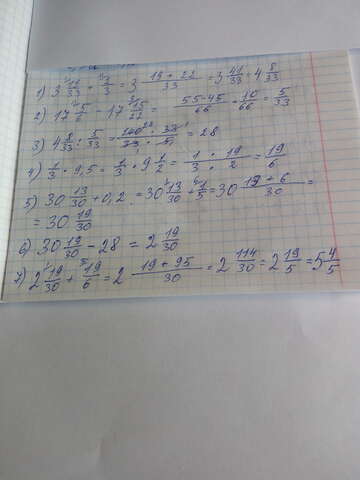 1) 3 19/33 + 2/3 = 3 (19 + 22)/33 = 3 41/33 = 4 8/33
2) 17 5/6 - 17 15/22 = (55 - 45)/66 = 10/66 = 5/33
3) 4 8/33 : 5/33 = (140 · 33)/(33 · 5) = 28
4) 1/3 · 9,5 = 1/3 · 9 1/2 = (1 · 19)/(3 · 2) = 19/6
5) 30 13/30 + 0,2 = 30 13/30 + 1/5 = 30 (13 + 6)/30 =
= 30 19/30
6) 30 19/30 - 28 = 2 19/30
7) 2 19/30 + 19/6 = 2 (19 + 95)/30 = 2 114/30 = 2 19/5 = 5 4/5